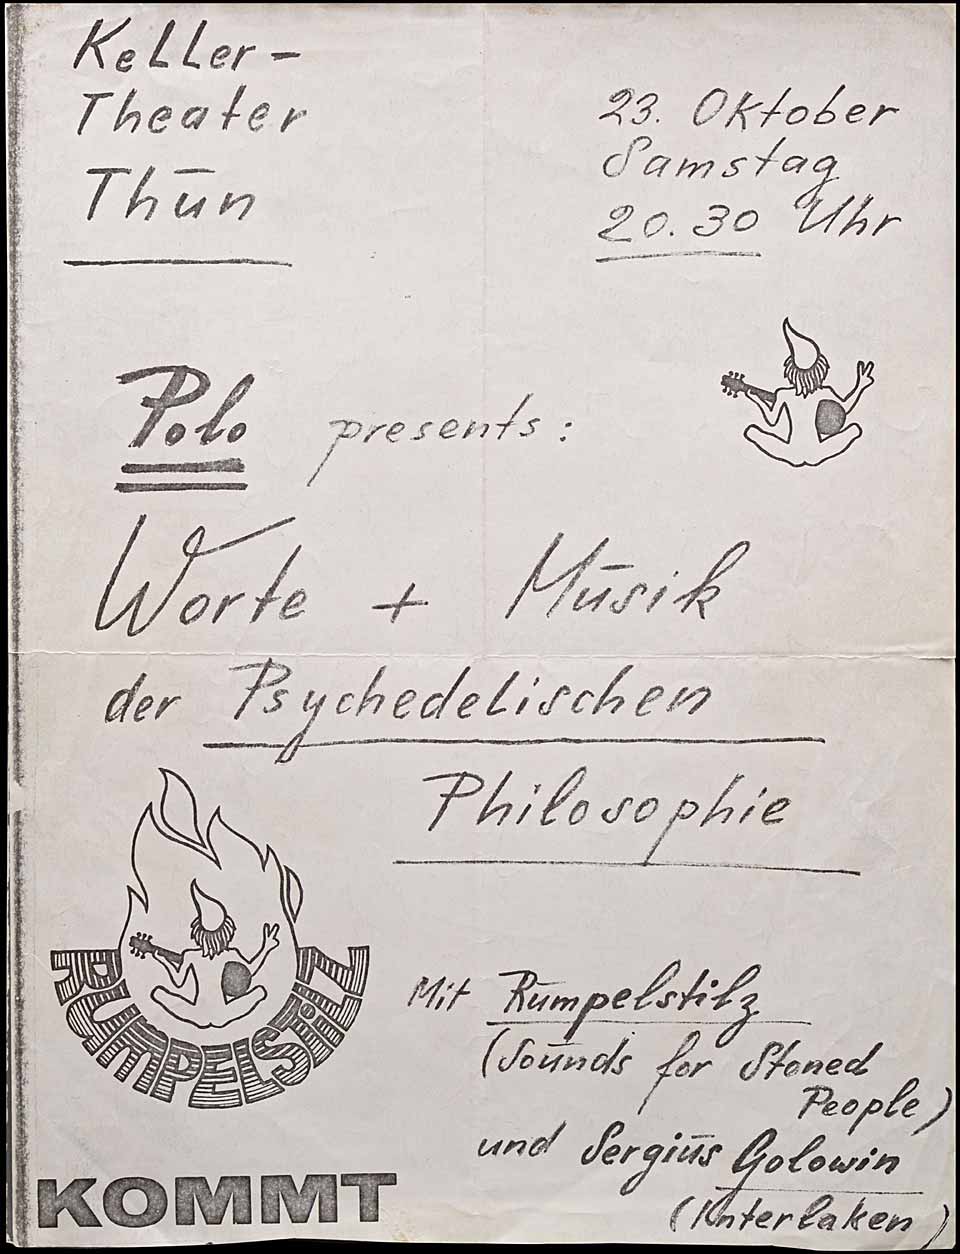 Keller-
Theater
Thun
23. Oktober
Samstag
20.30 Uhr
Polo presents:
Worte + Musik
der Psychedelischen
Philosophie
RUMPELSTILZ
Mit Rumpelstilz
(Sounds for Stoned
People)
und Sergius Golowin
(Interlaken)
KOMMT